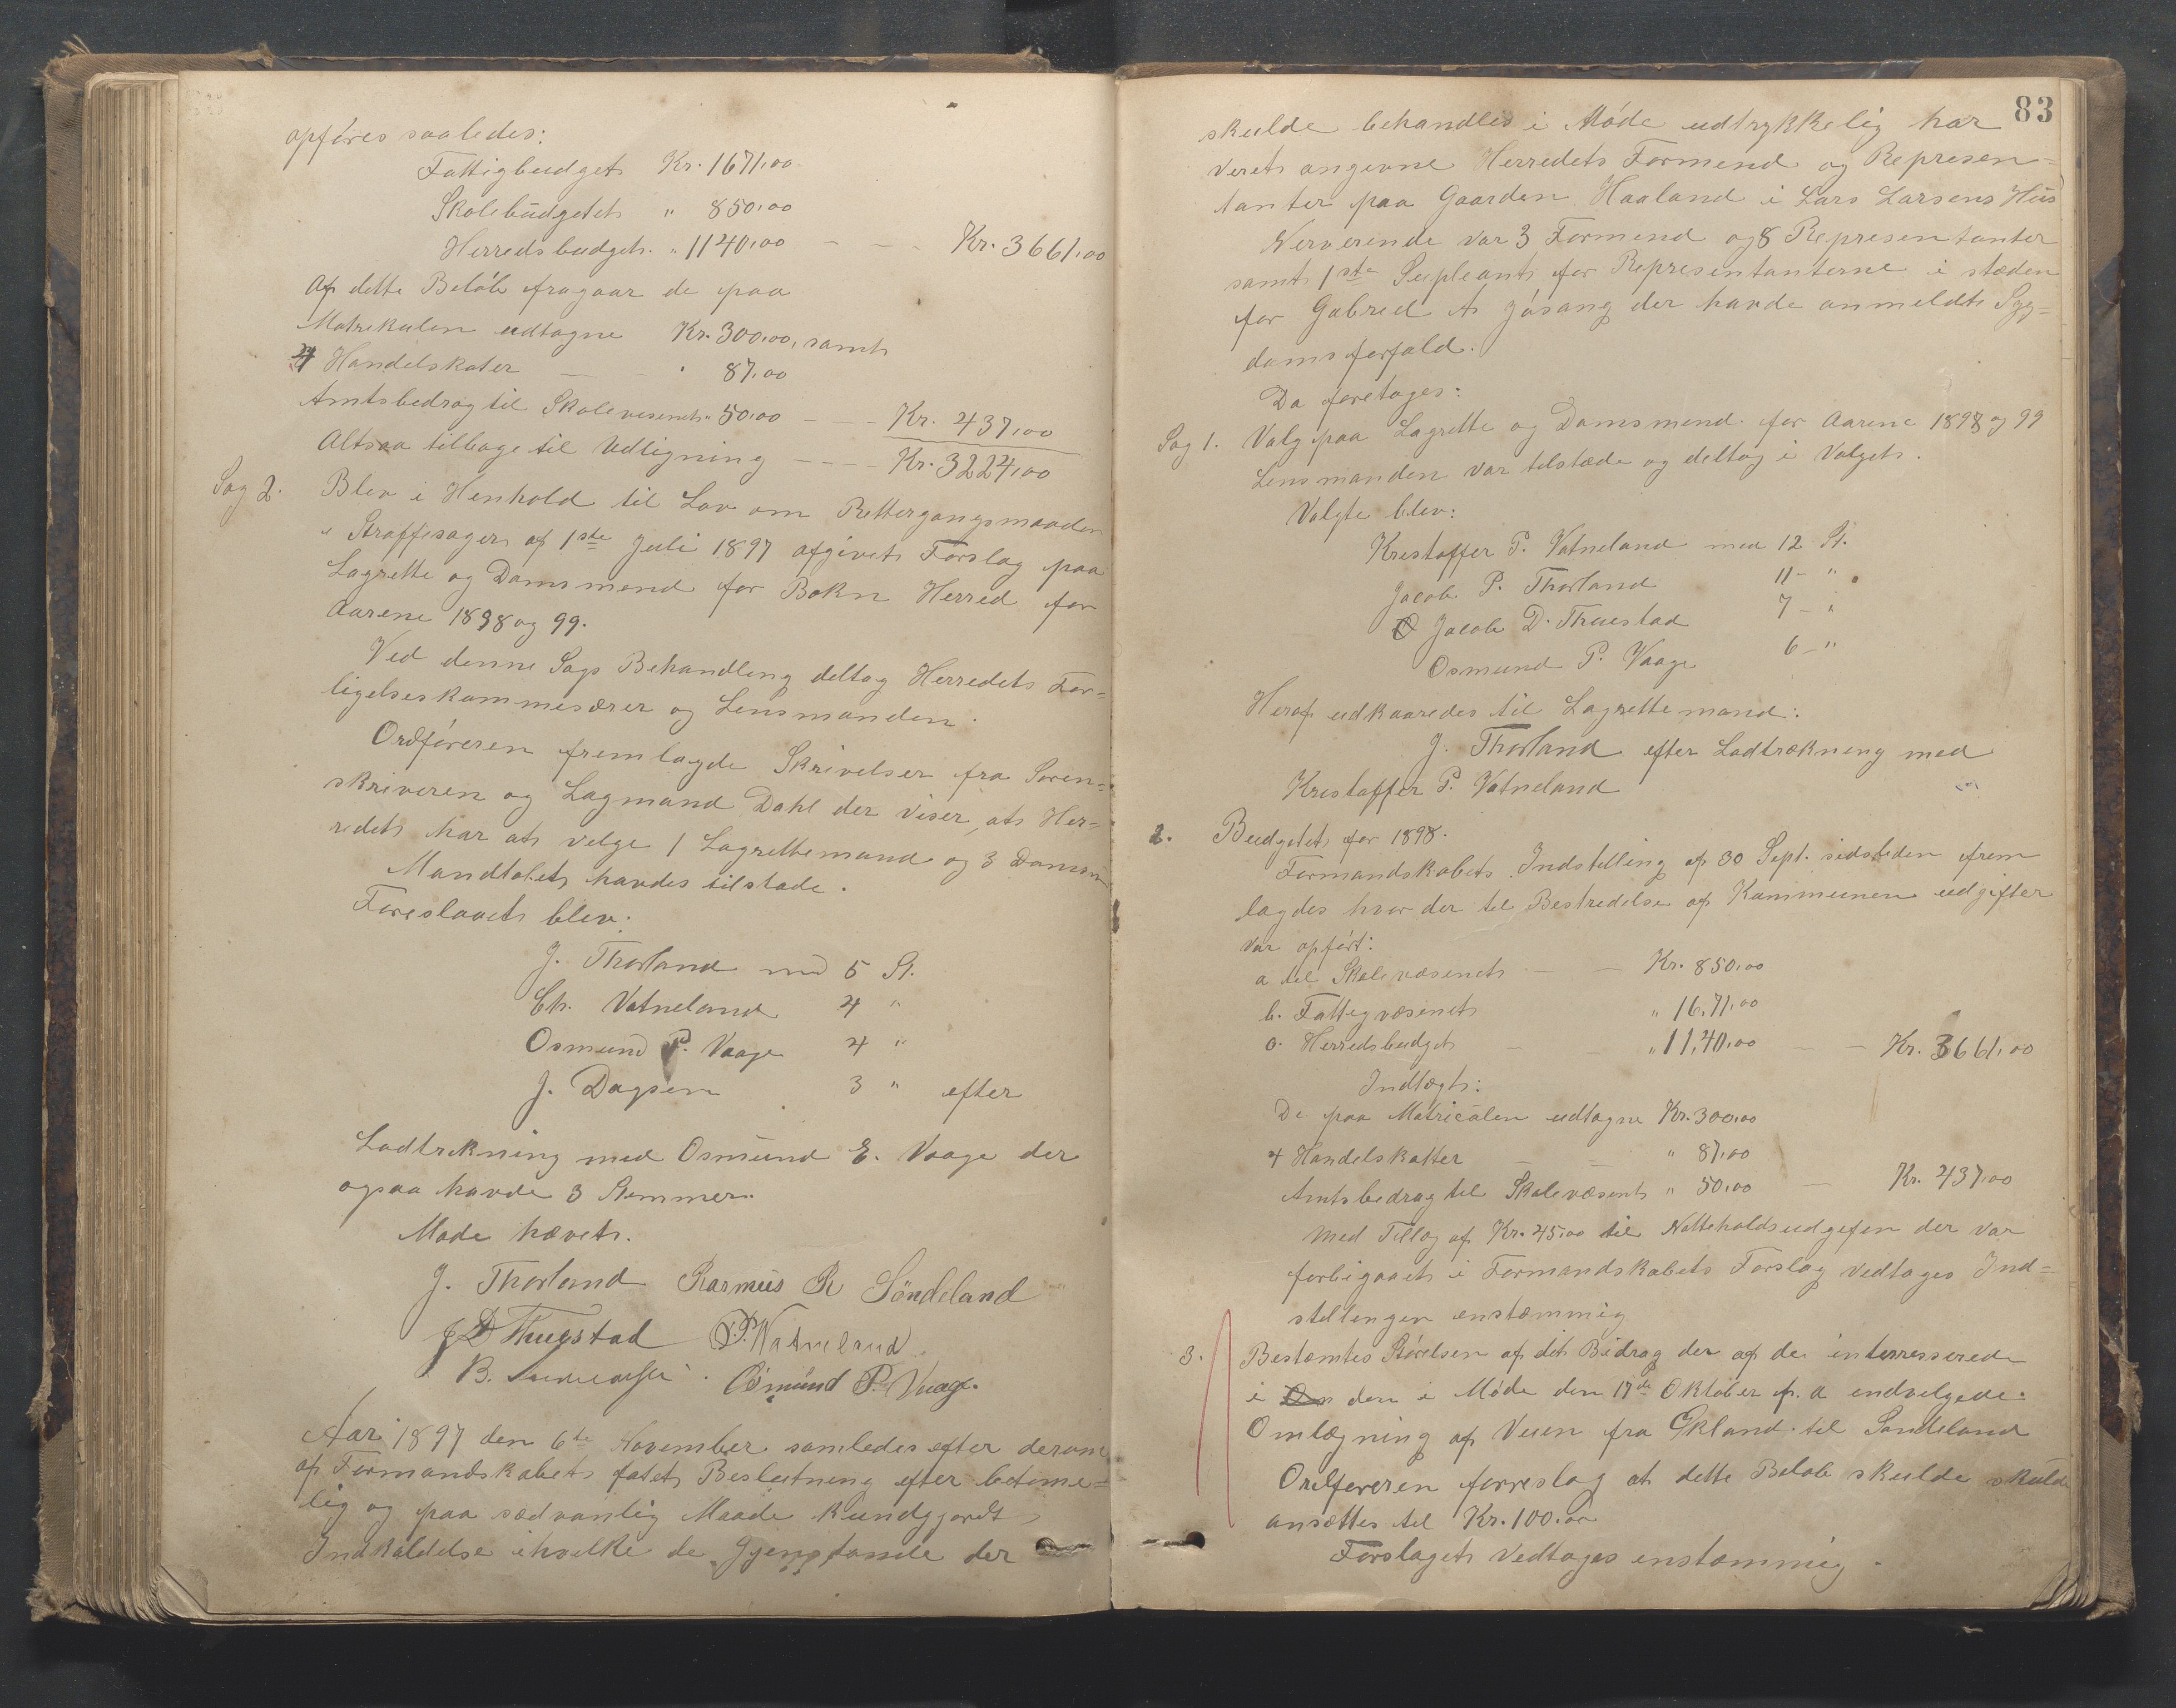 opføres saaledes:
Fattigbudget Kr. 1671,00
Skolebudgetet " 850,00
Herredsbudget " 1140,00 - - - Kr. 3661,00
Af dette Beløb fragaar de paa
Matrikulen udtagne Kr. 300,00, samt
4 Handelskater - - " 87,00
Amtsbedrag til Skolevesenet " 50,00 - - - Kr. 437,00
Altsaa tilbage til Udligning - - - - Kr. 3224,00
Sag 2. Blev i Henhold til Lov om Rettergangsmaaden
i Straffesager af 1ste Juli 1897 afgivet Forslag paa
Lagrette og Domsmend for Bokn Herred for
Aarene 1898 og 99.
Ved denne Sags Behandling deltog Herredets For=
ligelseskommesærer og Lensmanden.
Ordføreren fremlagde Skrivelser fra Soren=
skriveren og Lagmand Dahl der viser, at Her=
redet har at velge 1 Lagrettemand og 3 Domsm
Mandtalet havdes tilstade.
Foreslaaet blev:
J. Thorland med 5 St.
Ch. Vatneland 4 "
Osmund P. Vaage 4 "
J. Dagsen 3 " efter
Lodtrekning med Osmund E. Vaage der
ogsaa havde 3 Stemmer.
Møde hævet.
J. Thorland Rasmus R Söndeland
J D Thuestad C. P. Vatneland
B. Osmund P. Vaage.
Aar 1897 den 6te November samledes efter derom
af Formandskabet fatet Beslutning efter betime=
lig og paa sædvanlig Maade kundgjordt
Indkaldelse i hvilke de Gjenstande der
83
skulde behandles i Møde udtrykkelig har
veret angevne Herredets Formend og Represen=
tanter paa Gaarden Haaland i Lars Larsens Hus
Nerverende var 3 Formend og 8 Representanter
samt 1ste Supleant for Representanterne i stæden
for Gabrel A Jøsang der havde anmeldt Syg=
domsforfald.
Da foretages:
Sag 1. Valg paa Lagrette og Domsmend for Aarene 1898 og 99
Lensmanden var tilstæde og deltog i Valget.
Valgte blev:
Krestoffer P. Vatneland med 12 St.
Jacob P. Thorland 11 - "
Jacob D. Thuestad 7 - "
Osmund P. Vaage 6 - "
Heraf udkaaredes til Lagrettemand:
J. Thorland efter Lodtrekning med
Krestoffer P. Vatneland
2. Budgetet for 1898.
Formandskabets Indstilling af 30 Sept. sidstleden frem
lagdes hvor der til Bestredelse af Kommunen udgifter
var opført:
a til Skolevæsenet - - Kr. 850,00
b. Fattigvæsenet " 16,71,00
c. Herredsbudget - - " 11,40,00 - - Kr. 3661,00
Indtægt:
De paa Matricülen udtagne Kr. 300,00
4 Handelskatter - - " 87,00
Amtsbedrag til Skolevæsent " 50,00 - Kr. 437,00
Med Tillæg af Kr. 45,00 til Natteholdsudgefen der var
forbigaaet i Formandskabets Forslag vedtages Ind=
stellingen enstæmmig
3. Bestæmtes Størelsen af dit Bidrag der af de interresserede
i den i Møde den 17de Oktober f. a. endvelgede
Omlægning af Veien fra Økland til Søndeland
Ordføreren forreslog at dette Beløb skulde skulde
ansættes til Kr. 100,00
Forslaget vedtages enstæmmig.